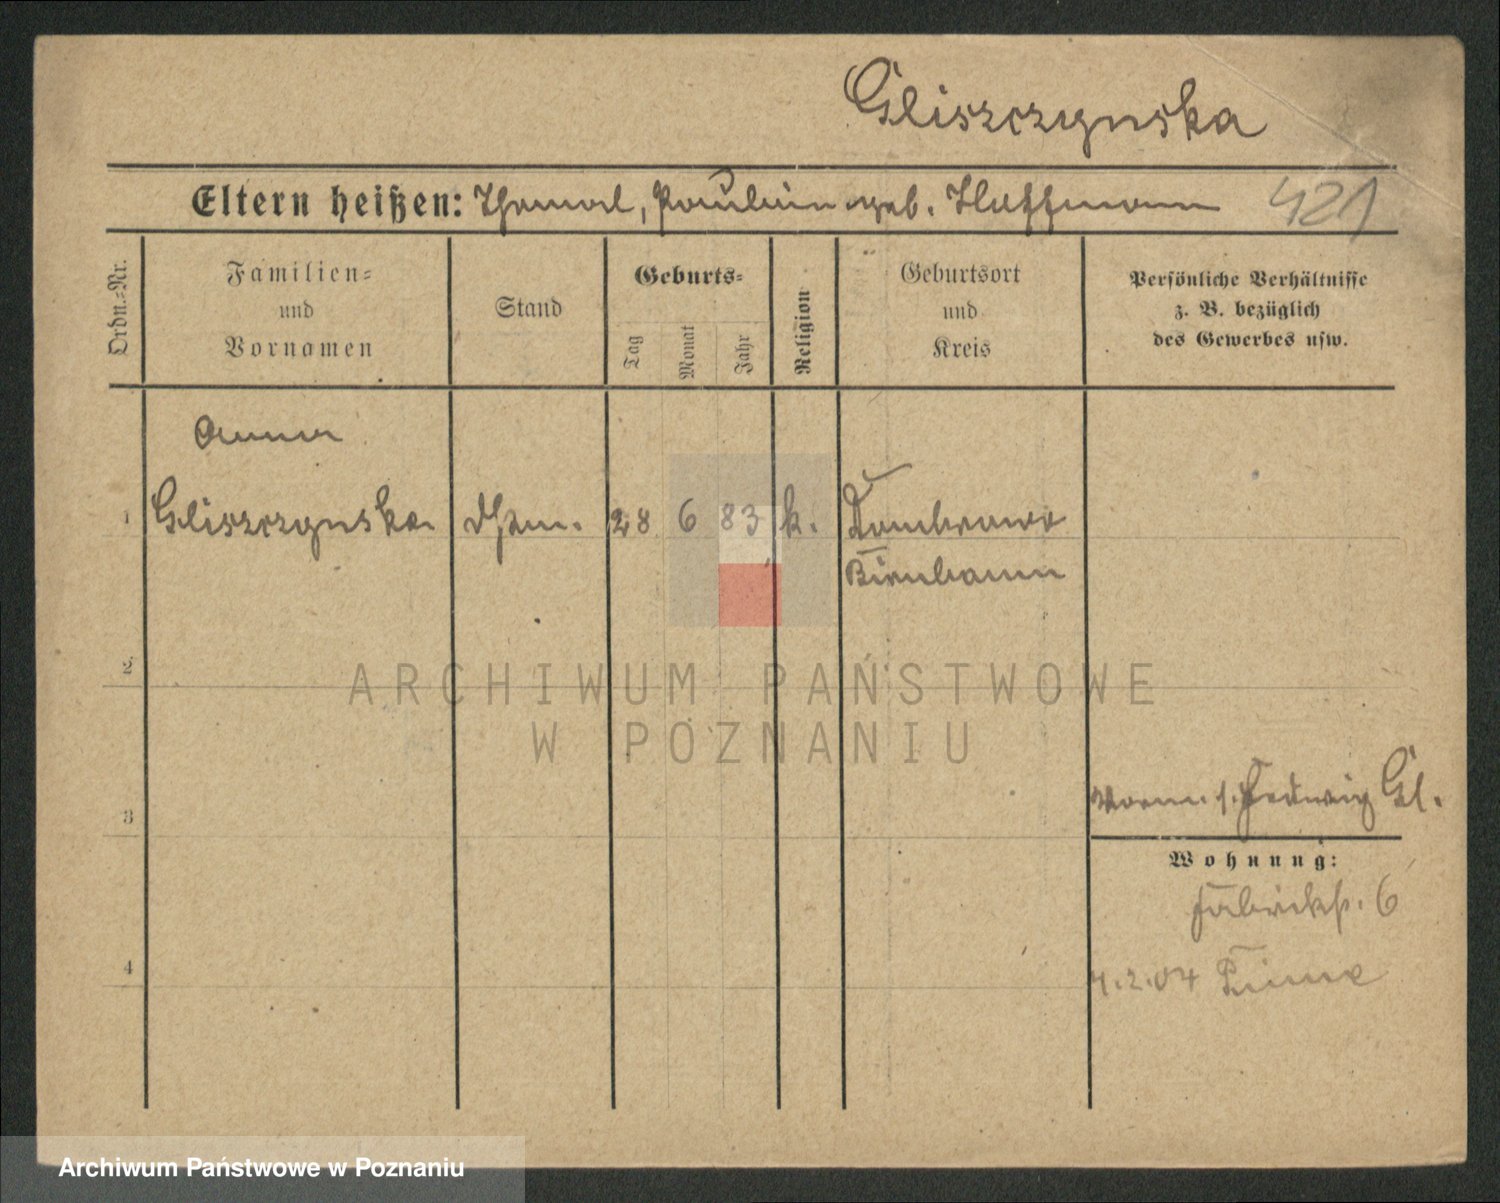 Gliszczynska
Eltern heißen: Thomas, Paulina geb. Hoffmann 421
Ordn.-Nr.
Familien-
und
Vornamen
Stand
Geburts-
Tag
Monat
Jahr
Religion
Geburtsort
und
Kreis
Persönliche Verhältnisse
z. B. bezüglich
des Gewerbes usw.
Anna
1 Gliszczynska 28 6 83 k. Dombrowo
Birnbaum
2
ARCHIWUM PAŃSTWOWE
W POZNANIU
3
Hedwig Gl.
Wohnung:
Fabrikstr. 6
4
4.2.04 Pinne
Archiwum Państwowe w Poznaniu